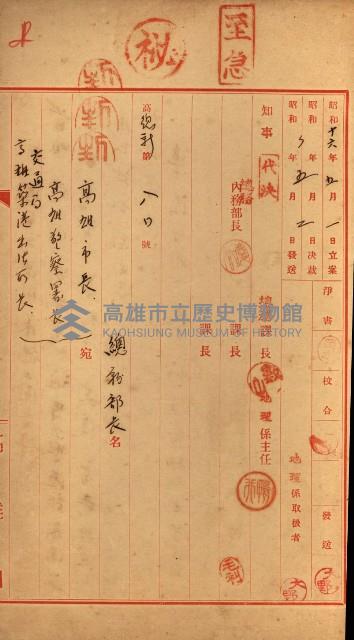 至急
昭和十六年五月一日立案
昭和 年 月 日決裁
昭和 年五月二日發送
淨書
校合
發送
地理係取扱者
大野
知事
代決
總務
內務部長
總務課長
課長
課長
地理係主任
毛利
高總新第八〇號
總務部長名
高雄市長
高雄警察署長
交通局
高雄築港出張所長
宛
高雄市立歷史博物館
KAOHSIUNG MUSEUM OF HISTORY